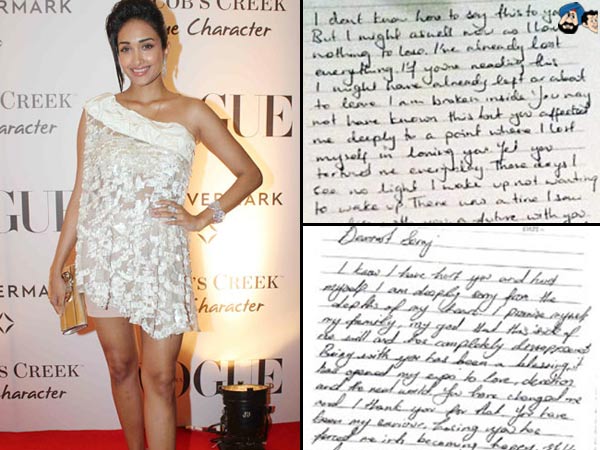 VERMARK
OB'S CREEK™
ue Character
CREEK™
aracter
GUE
VERMARK
VERMARK
B'S CREEK™
Character
'S CREEK™
aracter
OGUE
I don't know how to say this to yo
But I might aswell now as I have
nothing to lose. I've already lost
everything. If you're reading this
I might have already left or about
to leave. I am broken inside. You may
not have known this but you affected
me deeply to a point where I lost
myself in loving you. Yet you
tortured me everyday. These days I
see no light I wake up not wanting
to wake up. There was a time I saw
you, a future with you.
Dearest
I know I have hurt you and hurt
myself I am deeply sorry from the
depths of my heart. I promise myself
my family, my god that this
and has completely disappeared
Being with you has been a blessing. it
has opened my to love, devotion
and the real world. You have changed me
and I thank you for that. You have
been my saviour. Losing you has
forced me into becoming happy.